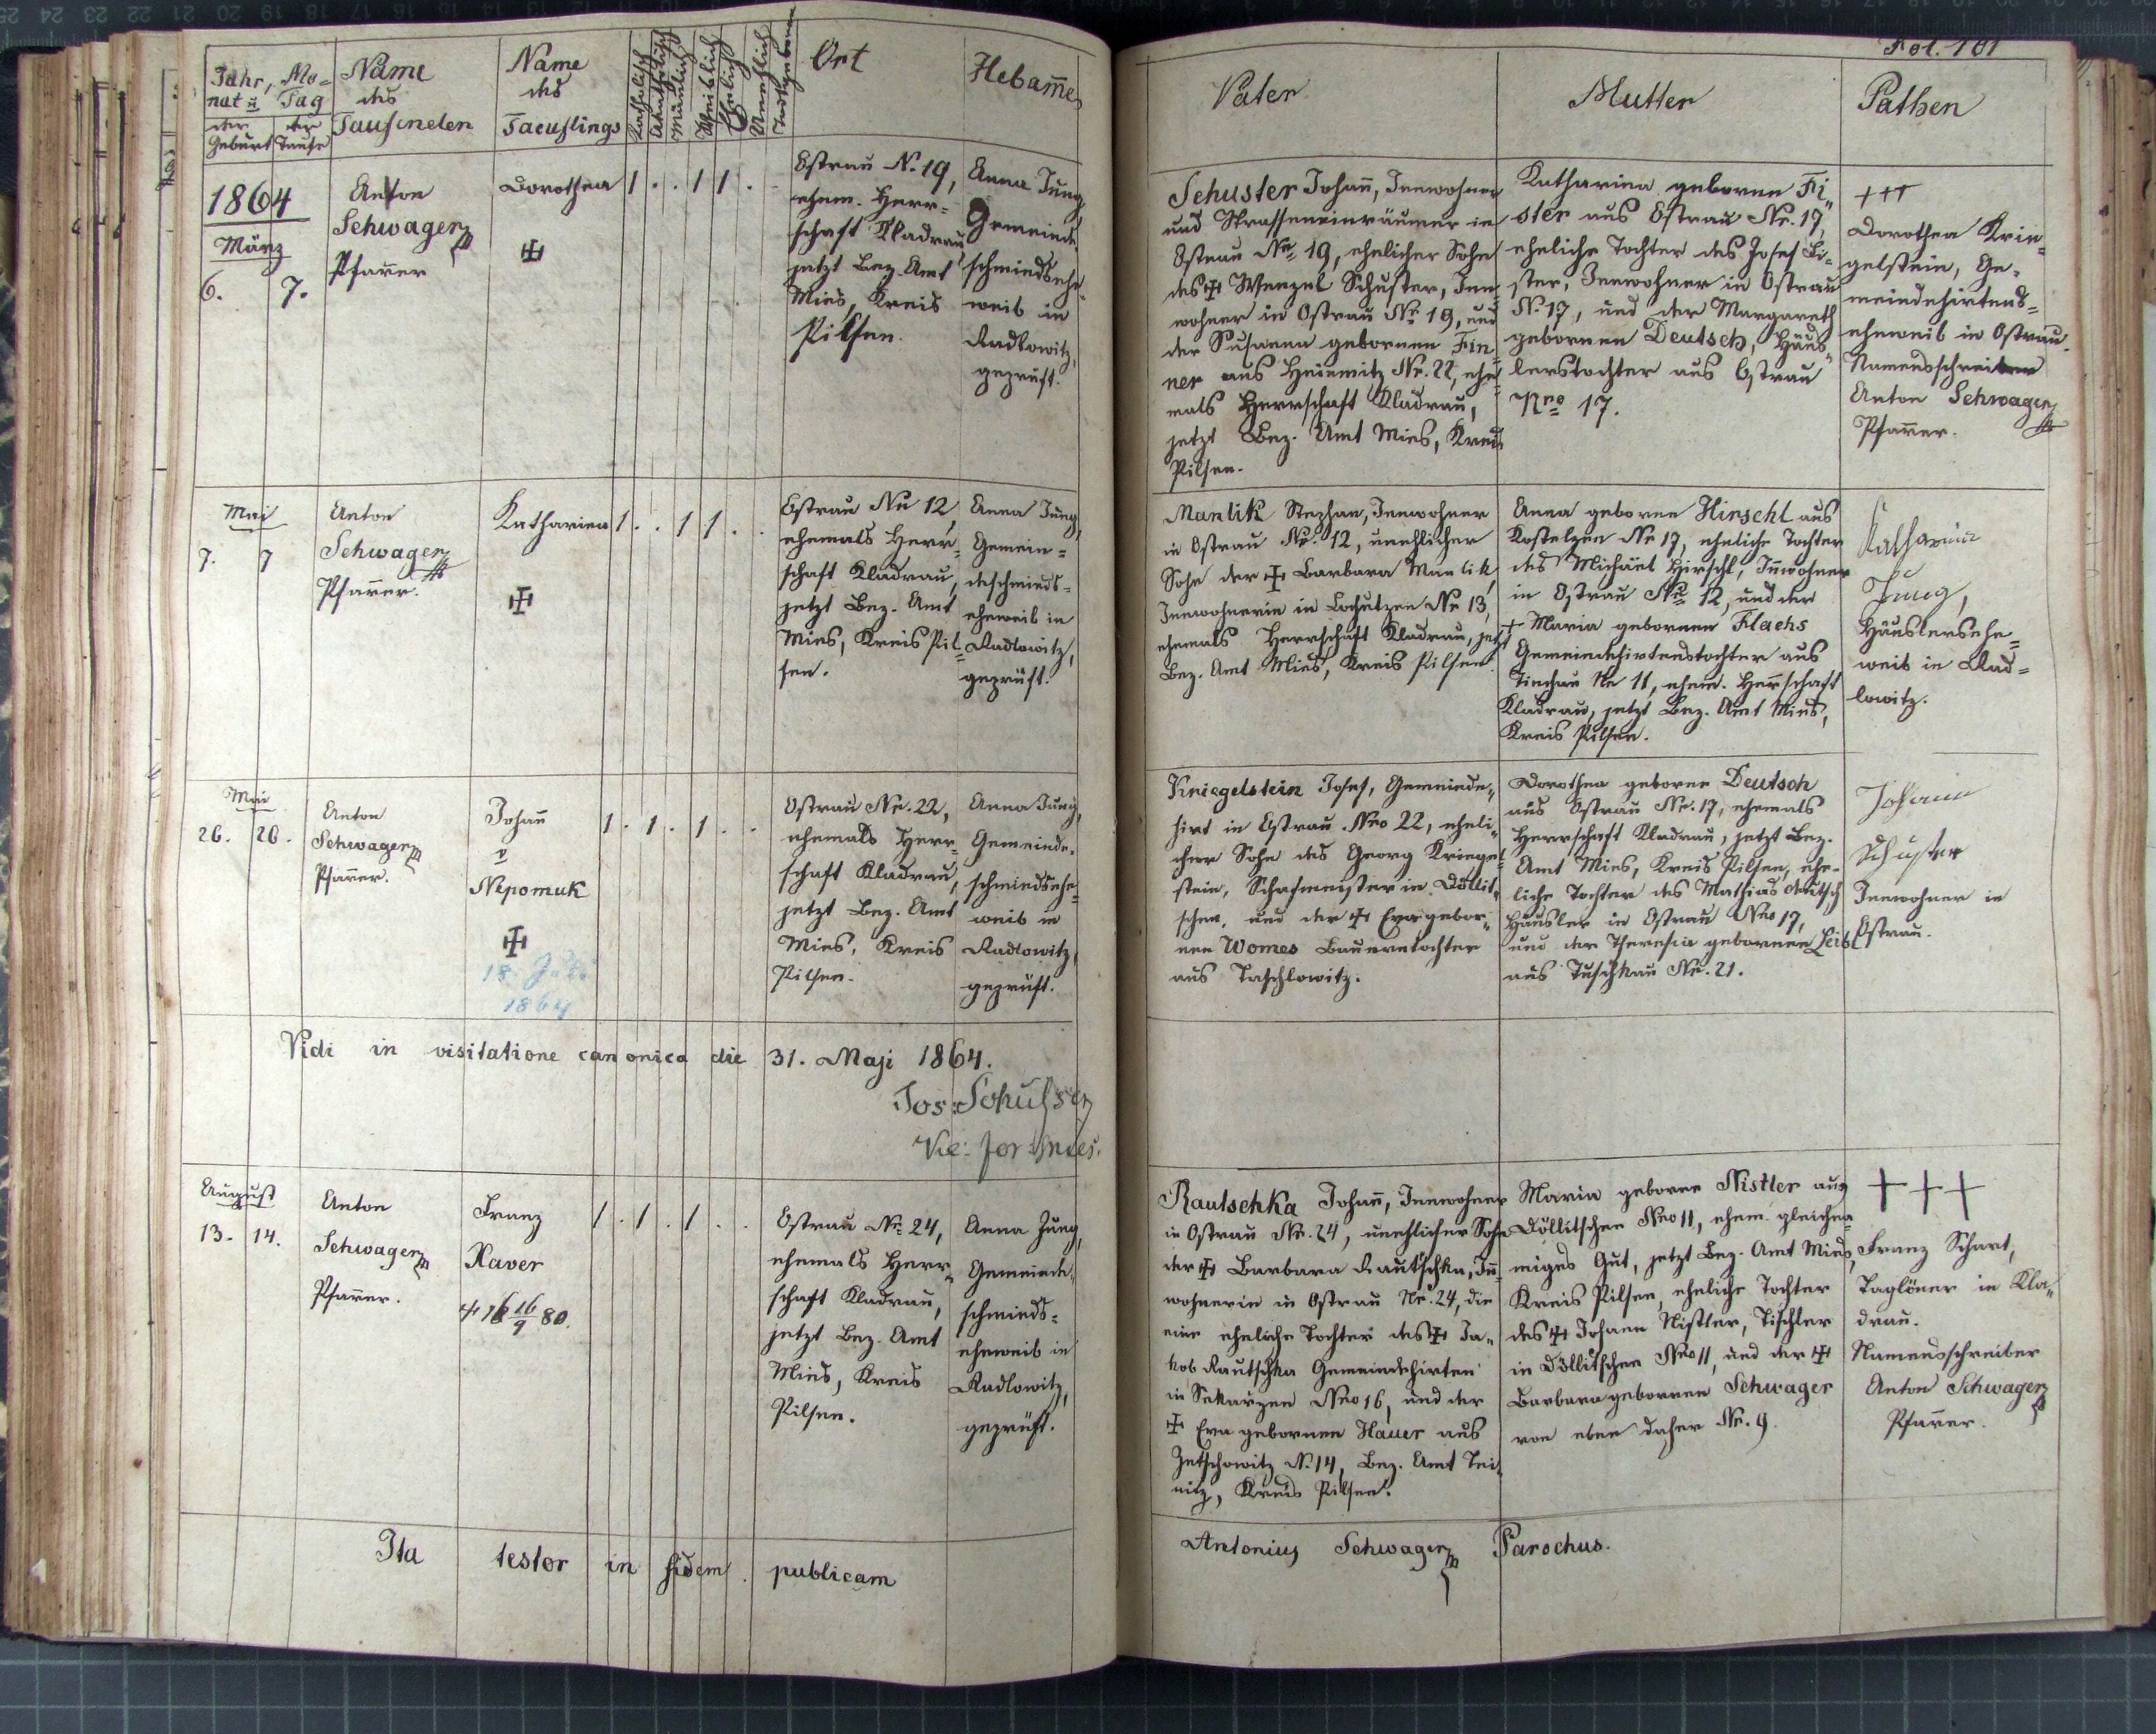 Fol. 101
Jahr, Mo=
nat u Tag
der Geburt
der Taufe
Name
des
Taufenden
Name
des
Taeuflings
Katholisch
Akatholisch
Mänlich
Weiblich
Ehelich
Unehelich
Ort
Hebam̄e
Vater
Mutter
Pathen
1864
März
6. 7.
Anton
Schwager
Pfarrer
Dorothea
1 . . 1 1 .
Ostrau N. 19,
ehem. Herr=
schaft Kladrau
jetzt Bez. Amt
Mies, Kreis
Pilsen.
Anna Jung
Gemeinde
schmiedsehe=
weib in
Radlowitz,
geprüft.
Schuster Johan̄, Inwohner
und Strasseneinräumer in
Ostrau Nr 19, ehelicher Sohn
des Wenzel Schuster, Inn=
wohner in Ostrau Nr 19, und
der Susanna gebornen Fin=
ner aus Heiemitz Nr. 22, ehe=
mals Herrschaft Kladrau,
jetzt Bez. Amt Mies, Kreis
Pilsen.
Katharina geborne Fi=
ster aus Ostrau Nr. 17,
eheliche Tochter des Josef Fi=
ster, Inwohner in Ostrau
N. 17, und der Margareth
gebornen Deutsch, Häus=
lerstochter aus Ostrau
Nro 17.
+++
Dorothea Krie=
gelstein, Ge=
meindehirtens=
eheweib in Ostrau.
Namensschreiber
Anton Schwager
Pfarrer.
Mai
7. 7
Anton
Schwager
Pfarrer.
Katharina
1 . . 1 1 .
Ostrau Nr 12
ehemals Herr=
schaft Kladrau,
jetzt Bez. Amt
Mies, Kreis Pil=
sen.
Anna Jung,
Gemein=
deschmieds=
eheweib in
Radlowitz,
geprüft.
Manlik Stephan, Inwohner
in Ostrau Nr. 12, unehlicher
Sohn der Barbara Manlik,
Inwohnerin in Lochutzen Nr 13,
ehemals Herrschaft Kladrau, jetzt
Bez. Amt Mies, Kreis Pilsen.
Anna geborne Hirschl aus
Kostelzen Nr 17, eheliche Tochter
des Michäel Hirschl, In̄wohner
in Ostrau Nr 12, und der
+ Maria gebornen Flachs
Gemeindehirtenstochter aus
Tinchau Nr 11, ehem. Herrschaft
Kladrau, jetzt Bez. Amt Mies,
Kreis Pilsen.
Katharina
Jung,
Häuslersehe=
weib in Rad=
lowitz.
Mai
26. 26.
Anton
Schwager
Pfarrer.
Johan̄
v
Nepomuk
18. Juli
1864
1 . 1 . 1 . .
Ostrau Nr. 22,
ehemals Herr=
schaft Kladrau,
jetzt Bez. Amt
Mies, Kreis
Pilsen.
Anna Jung,
Gemeinde=
schmiedsehe=
weib in
Radlowitz,
geprüft.
Kriegelstein Josef, Gemeinde=
hirt in Ostrau Nro 22, eheli=
cher Sohn des Georg Kriegel=
stein, Schafmeister in Döllit=
schen, und der Eva gebor=
nen Womes Bauerntochter
aus Taschlowitz.
Dorothea geborne Deutsch
aus Ostrau Nr. 17, ehemals
Herrschaft Kladrau, jetzt Bez.
Amt Mies, Kreis Pilsen, ehe=
liche Tochter des Mathias Deutsch
Häusler in Ostrau Nro 17,
und der Theresia gebornen Leibl
aus Tuschkau Nr. 21.
Johann
Schuster
Inwohner in
Ostrau.
Vidi in visitatione canonica die 31. Maji 1864.
Jos:
Vic: for:
August
13. 14.
Anton
Schwager
Pfarrer.
Franz
Xaver
+ 16 16/9 80.
1 . 1 . 1 . .
Ostrau Nr 24,
ehemals Herr=
schaft Kladrau,
jetzt Bez. Amt
Mies, Kreis
Pilsen.
Anna Jung,
Gemeinde=
schmieds=
eheweib in
Radlowitz,
geprüft.
Rautschka Johan̄, Inwohner
in Ostrau Nr. 24, unehlicher Sohn
der Barbara Rautschka, In̄=
wohnerin in Ostrau Nr. 24, die
eine eheliche Tochter des Ja=
kob Rautschka Gemeindehirten
in Sekarzen Nro 16, und der
Eva gebornen Hauer aus
Zetschowitz N. 14, Bez. Amt Tei=
nitz, Kreis Pilsen.
Maria geborne Nistler aus
Döllitschen Nro 11, ehem. gleichna=
miges Gut, jetzt Bez. Amt Mies,
Kreis Pilsen, eheliche Tochter
des Johann Nistler, Tischler
in Döllitschen Nro 11, und der
Barbara gebornen Schwager
von eben daher Nr. 9.
+++
Franz Schart,
Taglöner in Kla=
drau.
Namensschreiber
Anton Schwager
Pfarrer.
Ita testor in fidem publicam Antonius Schwager Parochus.